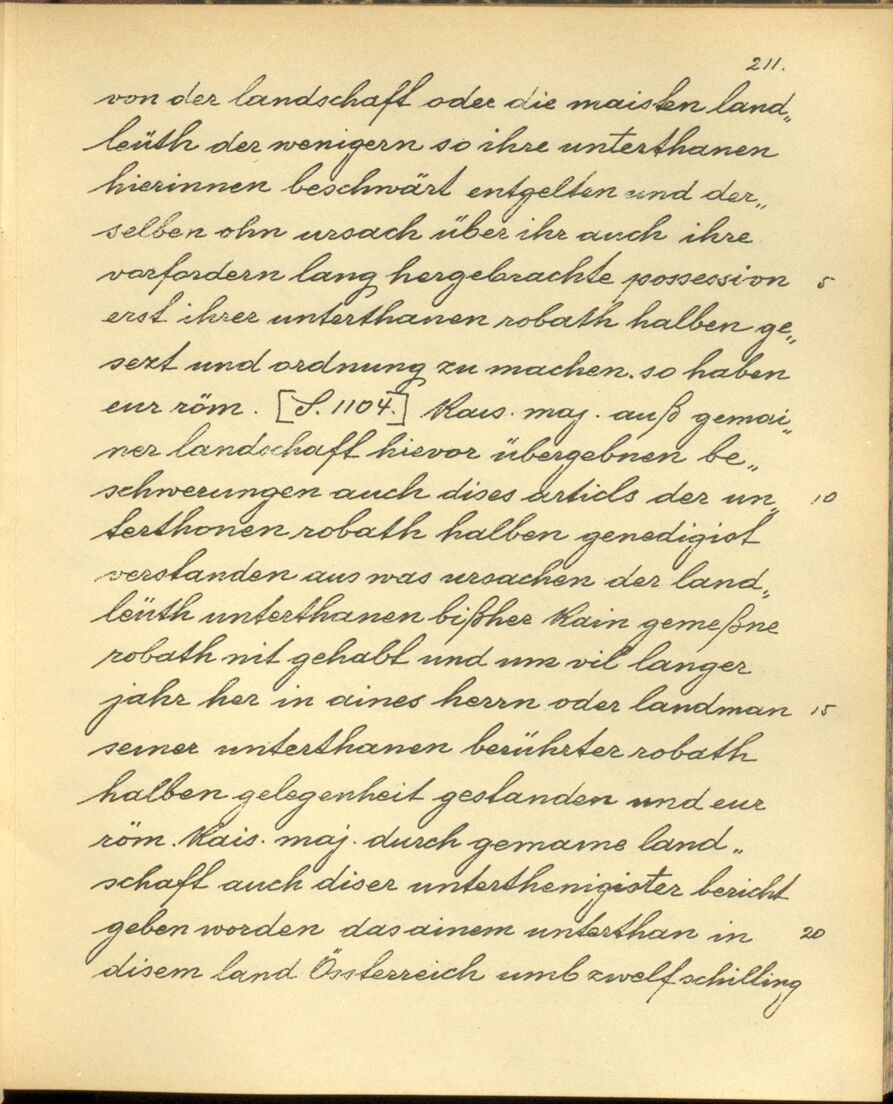 211.
von der landschaft oder die maisten land„
leüth der wenigern so ihre unterthanen
hierinnen beschwärt entgelten und der„
selben ohn ursach über ihr auch ihre
vorfordern lang hergebrachte possession 5
erst ihrer unterthanen robath halben ge„
sezt und ordnung zu machen. so haben
eur röm. [S. 1104.] Kais. maj. auß gemai„
ner landschaft hievor übergebnen be„
schwerungen auch dises articls der un„ 10
terthonen robath halben genedigist
verstanden aus was ursachen der land„
leüth unterthanen bißher Kain gemeßne
robath nit gehabt und um vil langer
jahr her in aines herrn oder landman 15
seiner unterthanen berührter robath
halben gelegenheit gestanden und eur
röm. Kais. maj. durch gemaine land„
schaft auch diser unterthenigister bericht
geben worden das ainem unterthan in 20
disem land Össterreich umb zwelf schilling